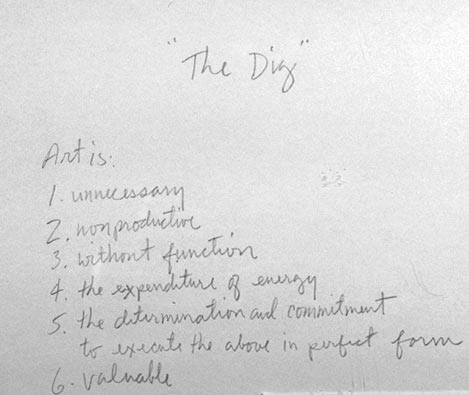 "The Dig"
Art is:
1. unnecessary
2. nonproductive
3. without function
4. the expenditure of energy
5. the determination and commitment
to execute the above in perfect form
6. valuable